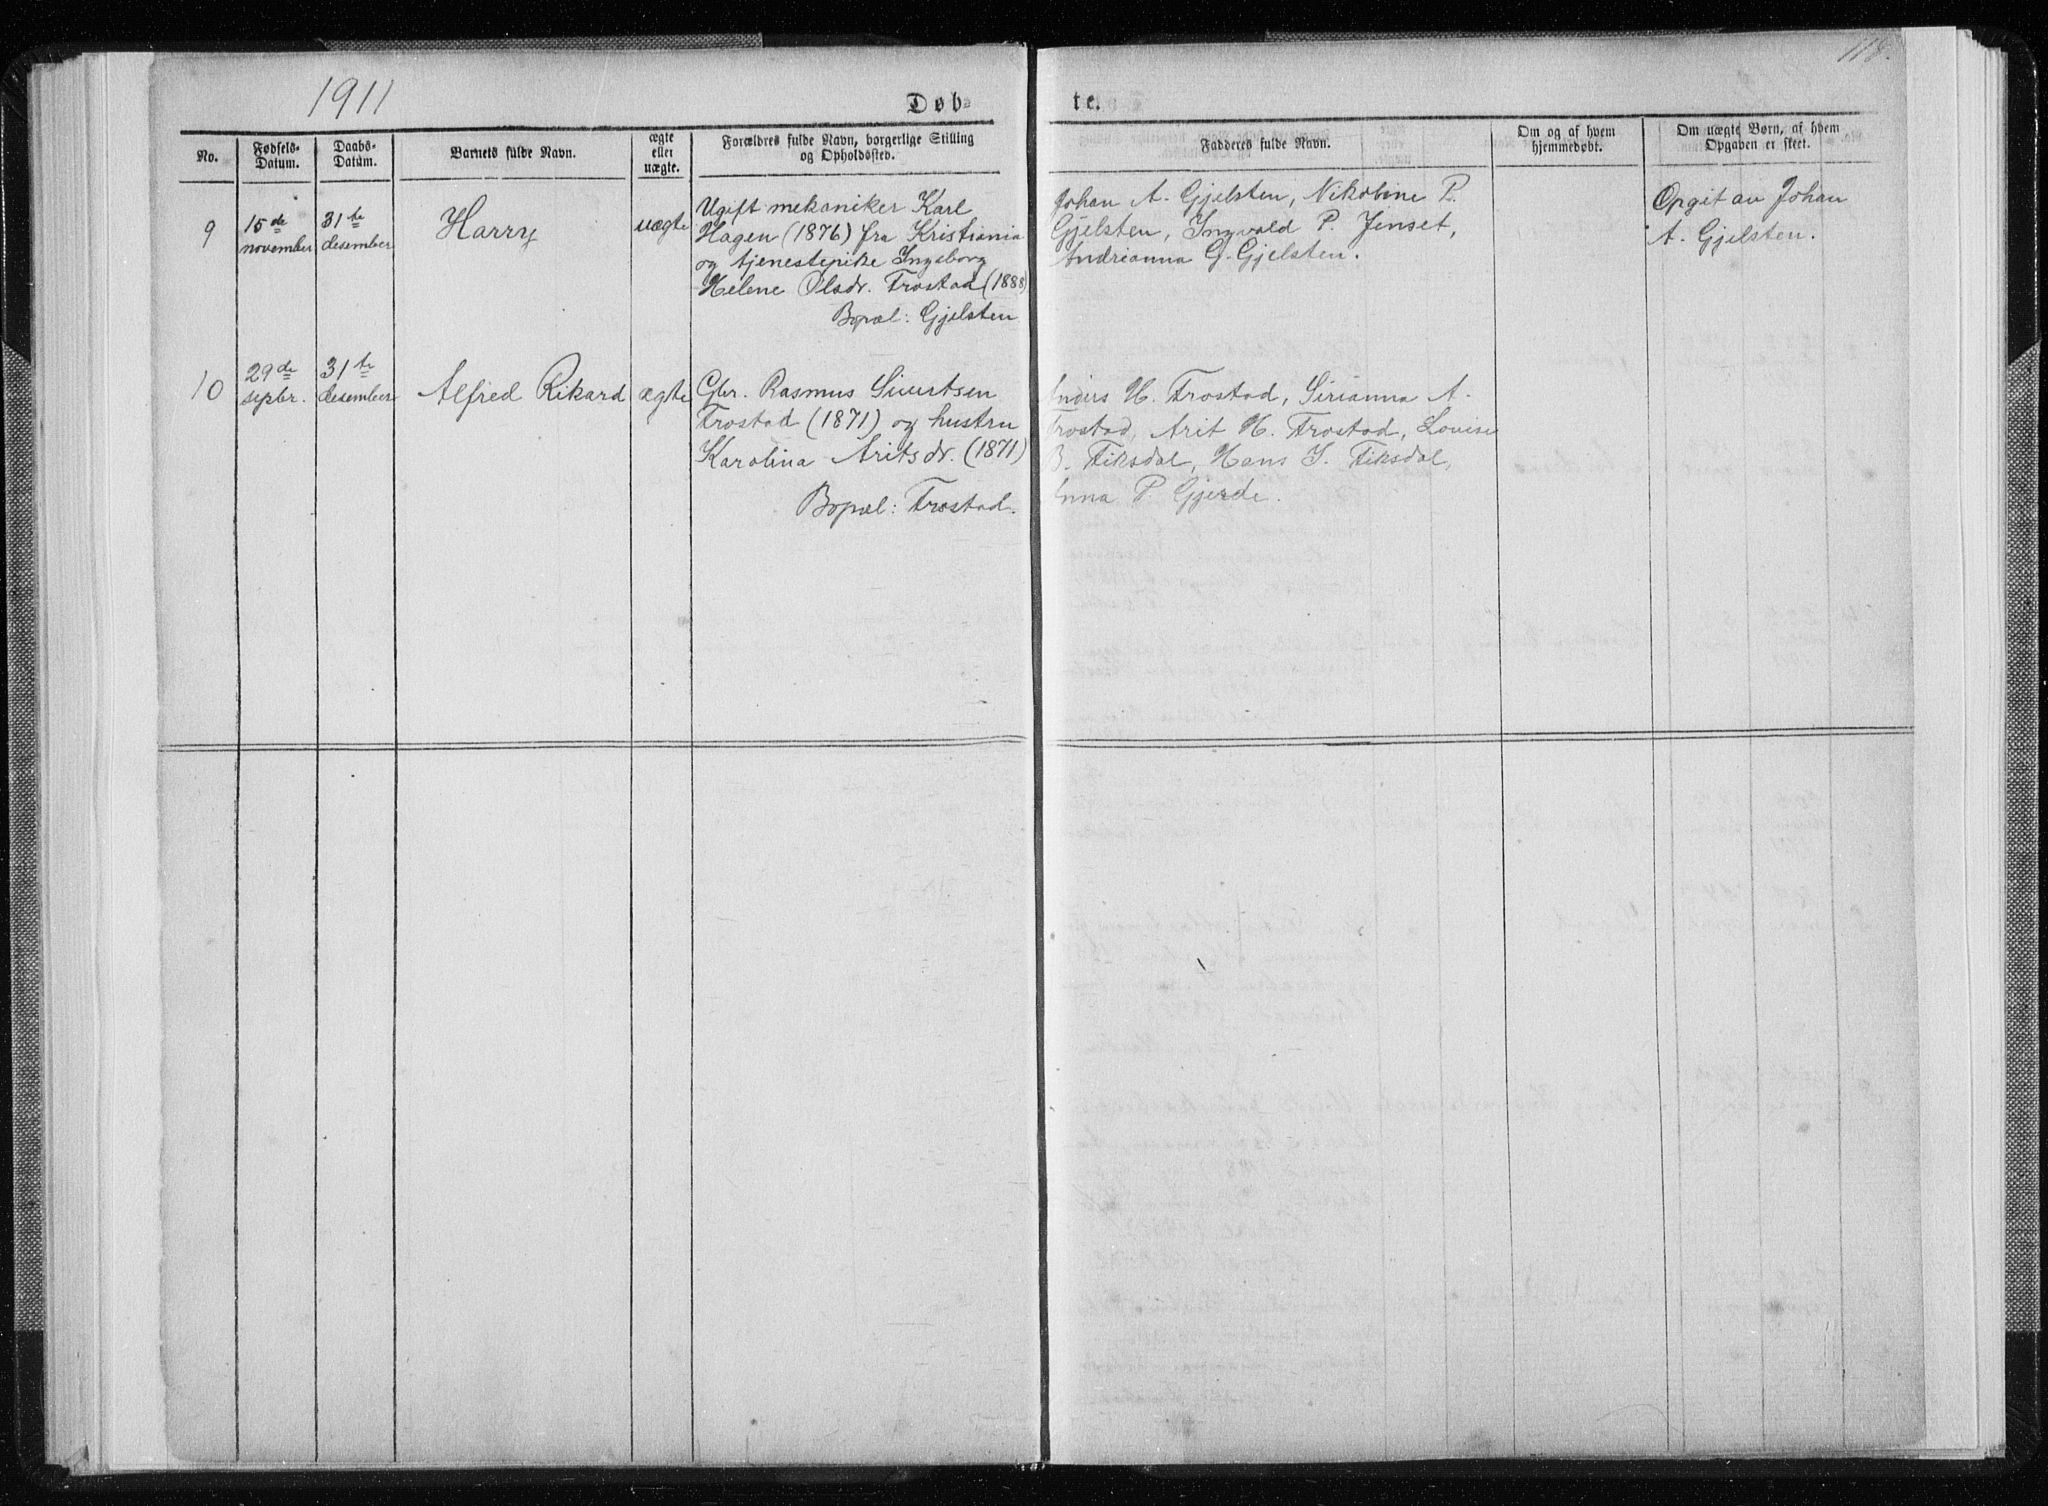 1911
Døb-
te.
118.
No.
Fødsels-
Datum.
Daabs-
Datum.
Barnets fulde Navn.
ægte
eller
uægte.
Forældres fulde Navn, borgerlige Stilling
og Opholdssted.
Fadderes fulde Navn.
Om og af hvem
hjemmedøbt.
Om uægte Børn, af hvem
Opgaven er skeet.
9
15de
november
31te
desember
Harry
uægte
Ugift mekaniker Karl
Hagen (1876) fra Kristiania
og tjenestepike Ingeborg
Helene Olsdr. Frostad (1888)
Bopæl: Gjelsten
Johan A. Gjelsten, Nikoline P.
Gjelsten, Ingvald P. Jenset,
Andrianna G. Gjelsten.
Opgit av Johan
A. Gjelsten.
10
29de
septbr.
31te
desember
Alfred Rikard
ægte
Gbr. Rasmus Sivertsen
Frostad (1871) og hustru
Karolina Aritsdr. (1871)
Bopæl: Frostad.
Anders H. Frostad, Sirianna A.
Frostad, Arit H. Frostad, Louise
B. Fiksdal, Hans S. Fiksdal,
Anna P. Gjerde.